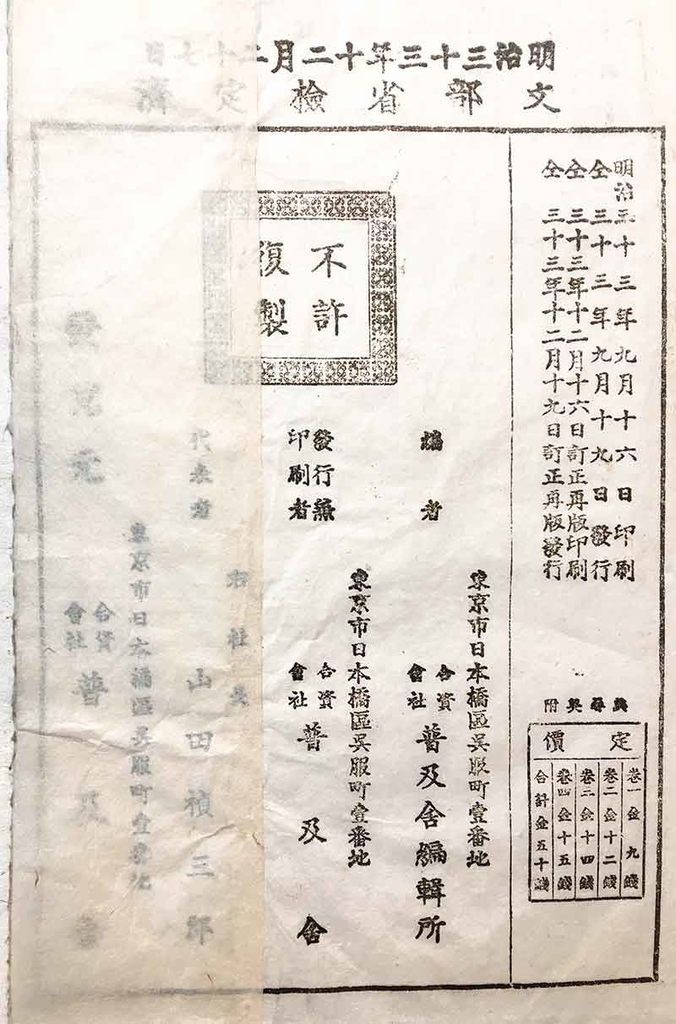 明治三十三年十二月二十七日
文部省檢定濟
明治三十三年九月十六日印刷
仝三十三年九月十九日發行
仝三十三年十二月十六日訂正再版印刷
仝三十三年十二月十九日訂正再版發行
定價
卷一金九錢
卷二金十二錢
卷三金十四錢
卷四金十五錢
合計金五十錢
不許
複製
編者
東京市日本橋區吳服町壹番地
合資會社普及舍編輯所
發行兼
印刷者
東京市日本橋區吳服町壹番地
合資會社普及舍
右社長
代表者
山田禎三郎
東京市日本橋區吳服町壹番地
發兌元
合資會社普及舍